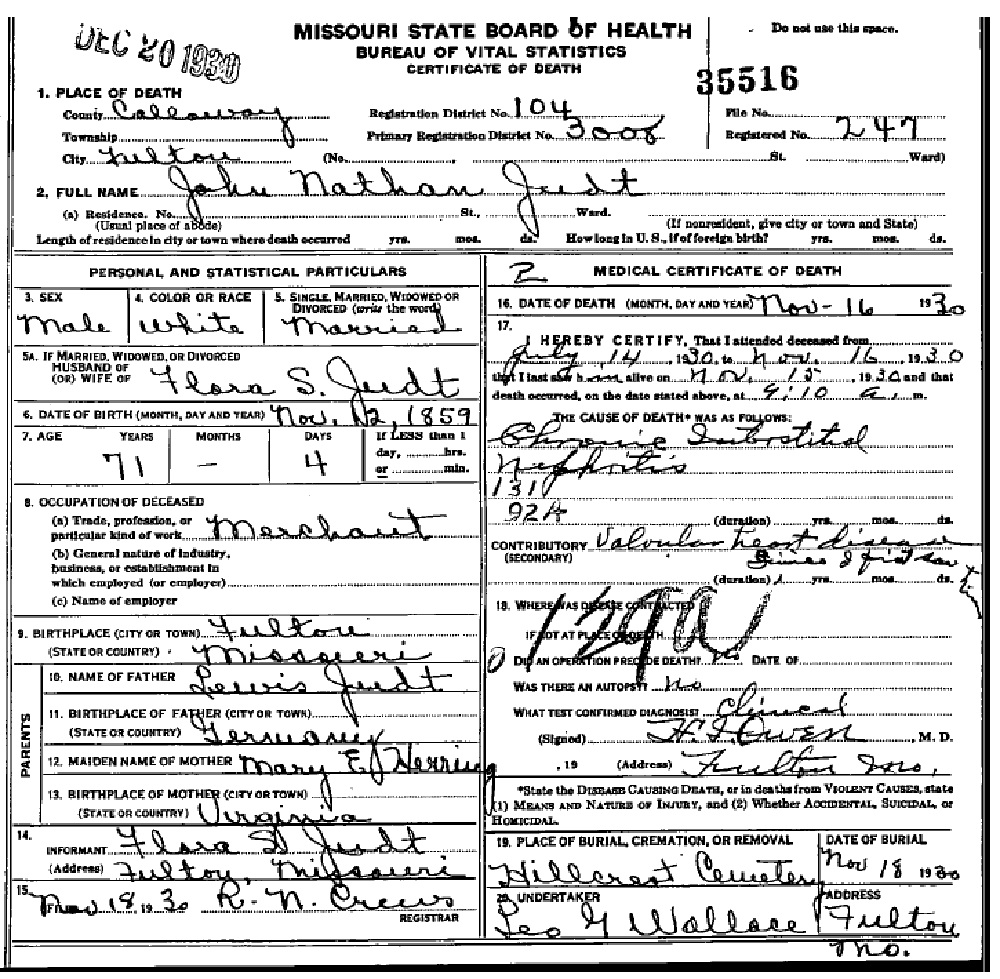 DEC 20 1930
MISSOURI STATE BOARD OF HEALTH
BUREAU OF VITAL STATISTICS
CERTIFICATE OF DEATH
Do not use this space.
35516
1. PLACE OF DEATH
County Callaway Registration District No. 104 File No.
Township Primary Registration District No. 3008 Registered No. 247
City Fulton (No. St. Ward)
2. FULL NAME John Nathan Judt
(a) Residence. No. St., Ward.
(Usual place of abode) (If nonresident, give city or town and State)
Length of residence in city or town where death occurred yrs. mos. ds. How long in U. S., if of foreign birth? yrs. mos. ds.
PERSONAL AND STATISTICAL PARTICULARS
3. SEX 4. COLOR OR RACE 5. SINGLE, MARRIED, WIDOWED OR
DIVORCED (write the word)
Male White Married
5A. IF MARRIED, WIDOWED, OR DIVORCED
HUSBAND OF
(OR) WIFE OF Flora S. Judt
6. DATE OF BIRTH (MONTH, DAY AND YEAR) Nov. 12, 1859
7. AGE YEARS MONTHS DAYS If LESS than 1
day, hrs.
or min.
71 - 4
8. OCCUPATION OF DECEASED
(a) Trade, profession, or
particular kind of work Merchant
(b) General nature of industry,
business, or establishment in
which employed (or employer)
(c) Name of employer
9. BIRTHPLACE (CITY OR TOWN) Fulton
(STATE OR COUNTRY) Missouri
PARENTS
10. NAME OF FATHER Lewis Judt
11. BIRTHPLACE OF FATHER (CITY OR TOWN)
(STATE OR COUNTRY) Germany
12. MAIDEN NAME OF MOTHER Mary E. Herring
13. BIRTHPLACE OF MOTHER (CITY OR TOWN)
(STATE OR COUNTRY) Virginia
14.
INFORMANT Flora S Judt
(Address) Fulton, Missouri
15.
FILED Nov 18, 1930 R. N. Crews
REGISTRAR
2 MEDICAL CERTIFICATE OF DEATH
16. DATE OF DEATH (MONTH, DAY AND YEAR) Nov - 16 1930
17.
I HEREBY CERTIFY, That I attended deceased from
July 14, 1930, to Nov. 16, 1930
that I last saw him alive on Nov. 15, 1930 and that
death occurred, on the date stated above, at 9:10 a. m.
THE CAUSE OF DEATH* WAS AS FOLLOWS:
Chronic Interstitial
Nephritis
131
92A
(duration) yrs. mos. ds.
CONTRIBUTORY Valvular heart disease
(SECONDARY) Since I first saw him
(duration) yrs. mos. ds.
18. WHERE WAS DISEASE CONTRACTED
129a
IF NOT AT PLACE OF DEATH
DID AN OPERATION PRECEDE DEATH? no DATE OF
WAS THERE AN AUTOPSY? no
WHAT TEST CONFIRMED DIAGNOSIS? Clinical
(Signed) Owen, M. D.
, 19 (Address) Fulton Mo.
*State the DISEASE CAUSING DEATH, or in deaths from VIOLENT CAUSES, state
(1) MEANS AND NATURE OF INJURY, and (2) Whether ACCIDENTAL, SUICIDAL, or
HOMICIDAL.
19. PLACE OF BURIAL, CREMATION, OR REMOVAL DATE OF BURIAL
Hillcrest Cemetery Nov 18 1930
20. UNDERTAKER ADDRESS
Leo G Wallace Fulton
Mo.